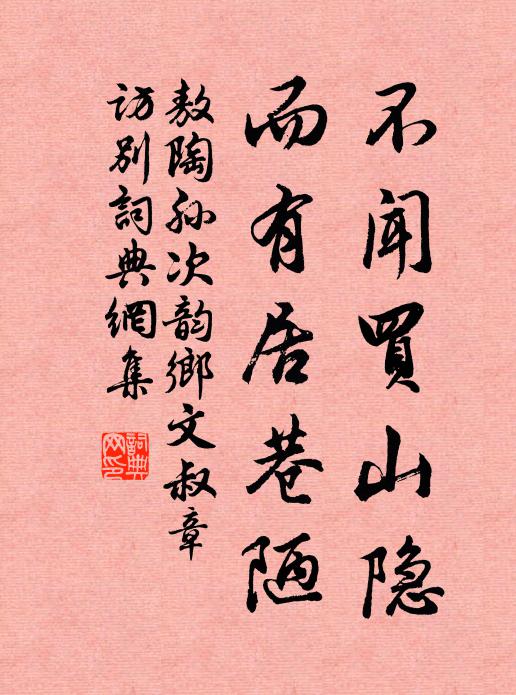 不闻買山隐
而有居巷陋
敖陶孙次韵鄉文叔章
访别詞典網集
詞典网印